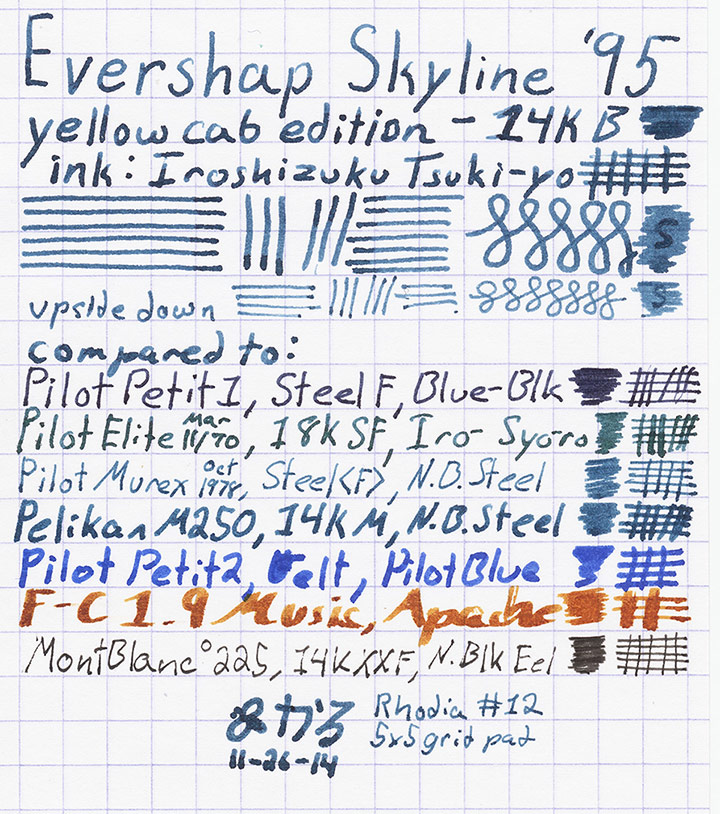 Evershap Skyline '95
yellow cab edition - 14K B
ink: Iroshizuku Tsuki-yo
S
upside down
S
compared to:
Pilot Petit1, Steel F, Blue-Blk
Pilot Elite Mar 11/70, 18K SF, Iro- Syo-ro
Pilot Murex Oct 1978, Steel<F>, N.B.Steel
Pelikan M250, 14K M, N.B.Steel
Pilot Petit2, Felt, Pilot Blue
F-C 1.9 Music, Apache
MontBlanc°225, 14K XXF, N.Blk Eel
Rhodia #12
5x5 grid pad
11-26-14